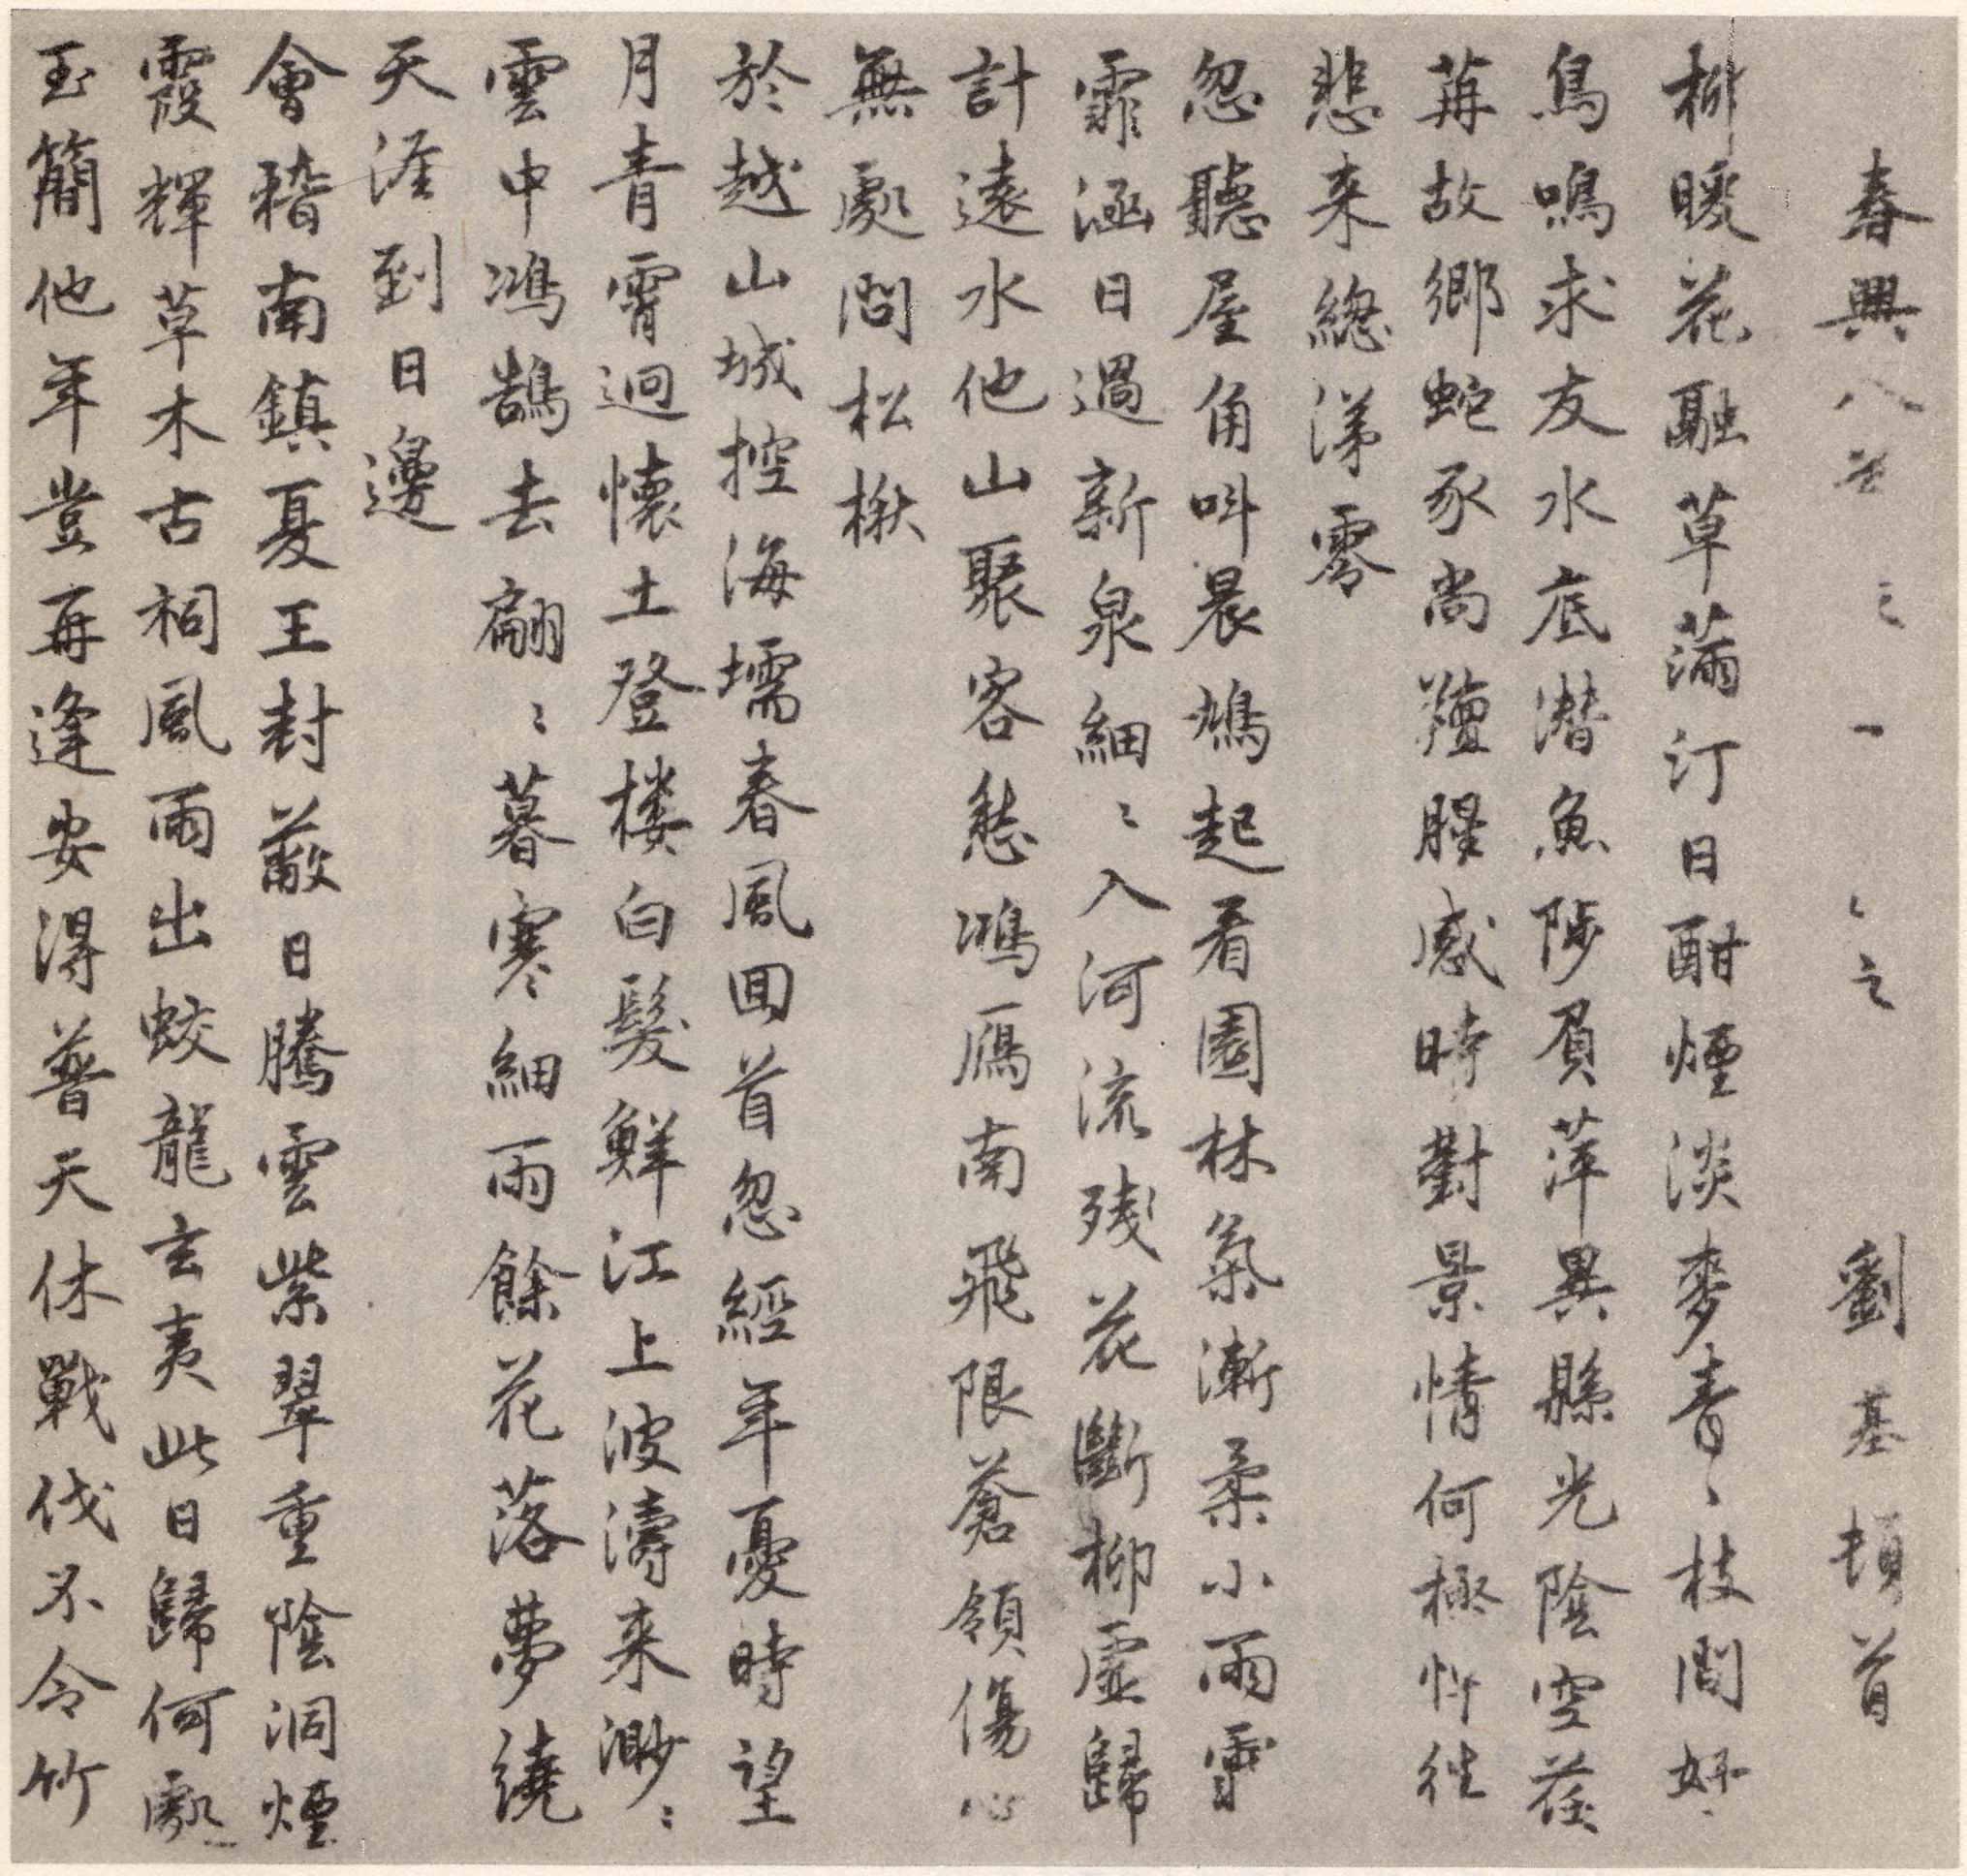 春興八首 劉基頓首
柳暖花融草滿汀日酣煙淡麥青〻枝間好
鳥鳴求友水底潛魚陟負萍異縣光陰空荏
苒故鄉蛇豕尚羶腥感時對景情何極忤往
悲来總涕零
忽聽屋角叫晨鳩起看園林氣漸柔小雨霏
霏涵日過新泉細〻入河流殘花斷柳虛歸
計遠水他山聚客愁鴻鴈南飛限蒼領傷心
無處問松楸
於越山城控海壖春風回首忽經年憂時望
月青霄迥懷土登楼白髮鮮江上波濤来渺〻
雲中鴻鵠去翩〻暮寒細雨餘花落夢繞
天涯到日邊
會稽南鎮夏王封蔽日騰雲紫翠重陰洞煙
霞輝草木古祠風雨出蛟龍玄夷此日歸何處
玉簡他年豈再逢安得普天休戰伐不令竹